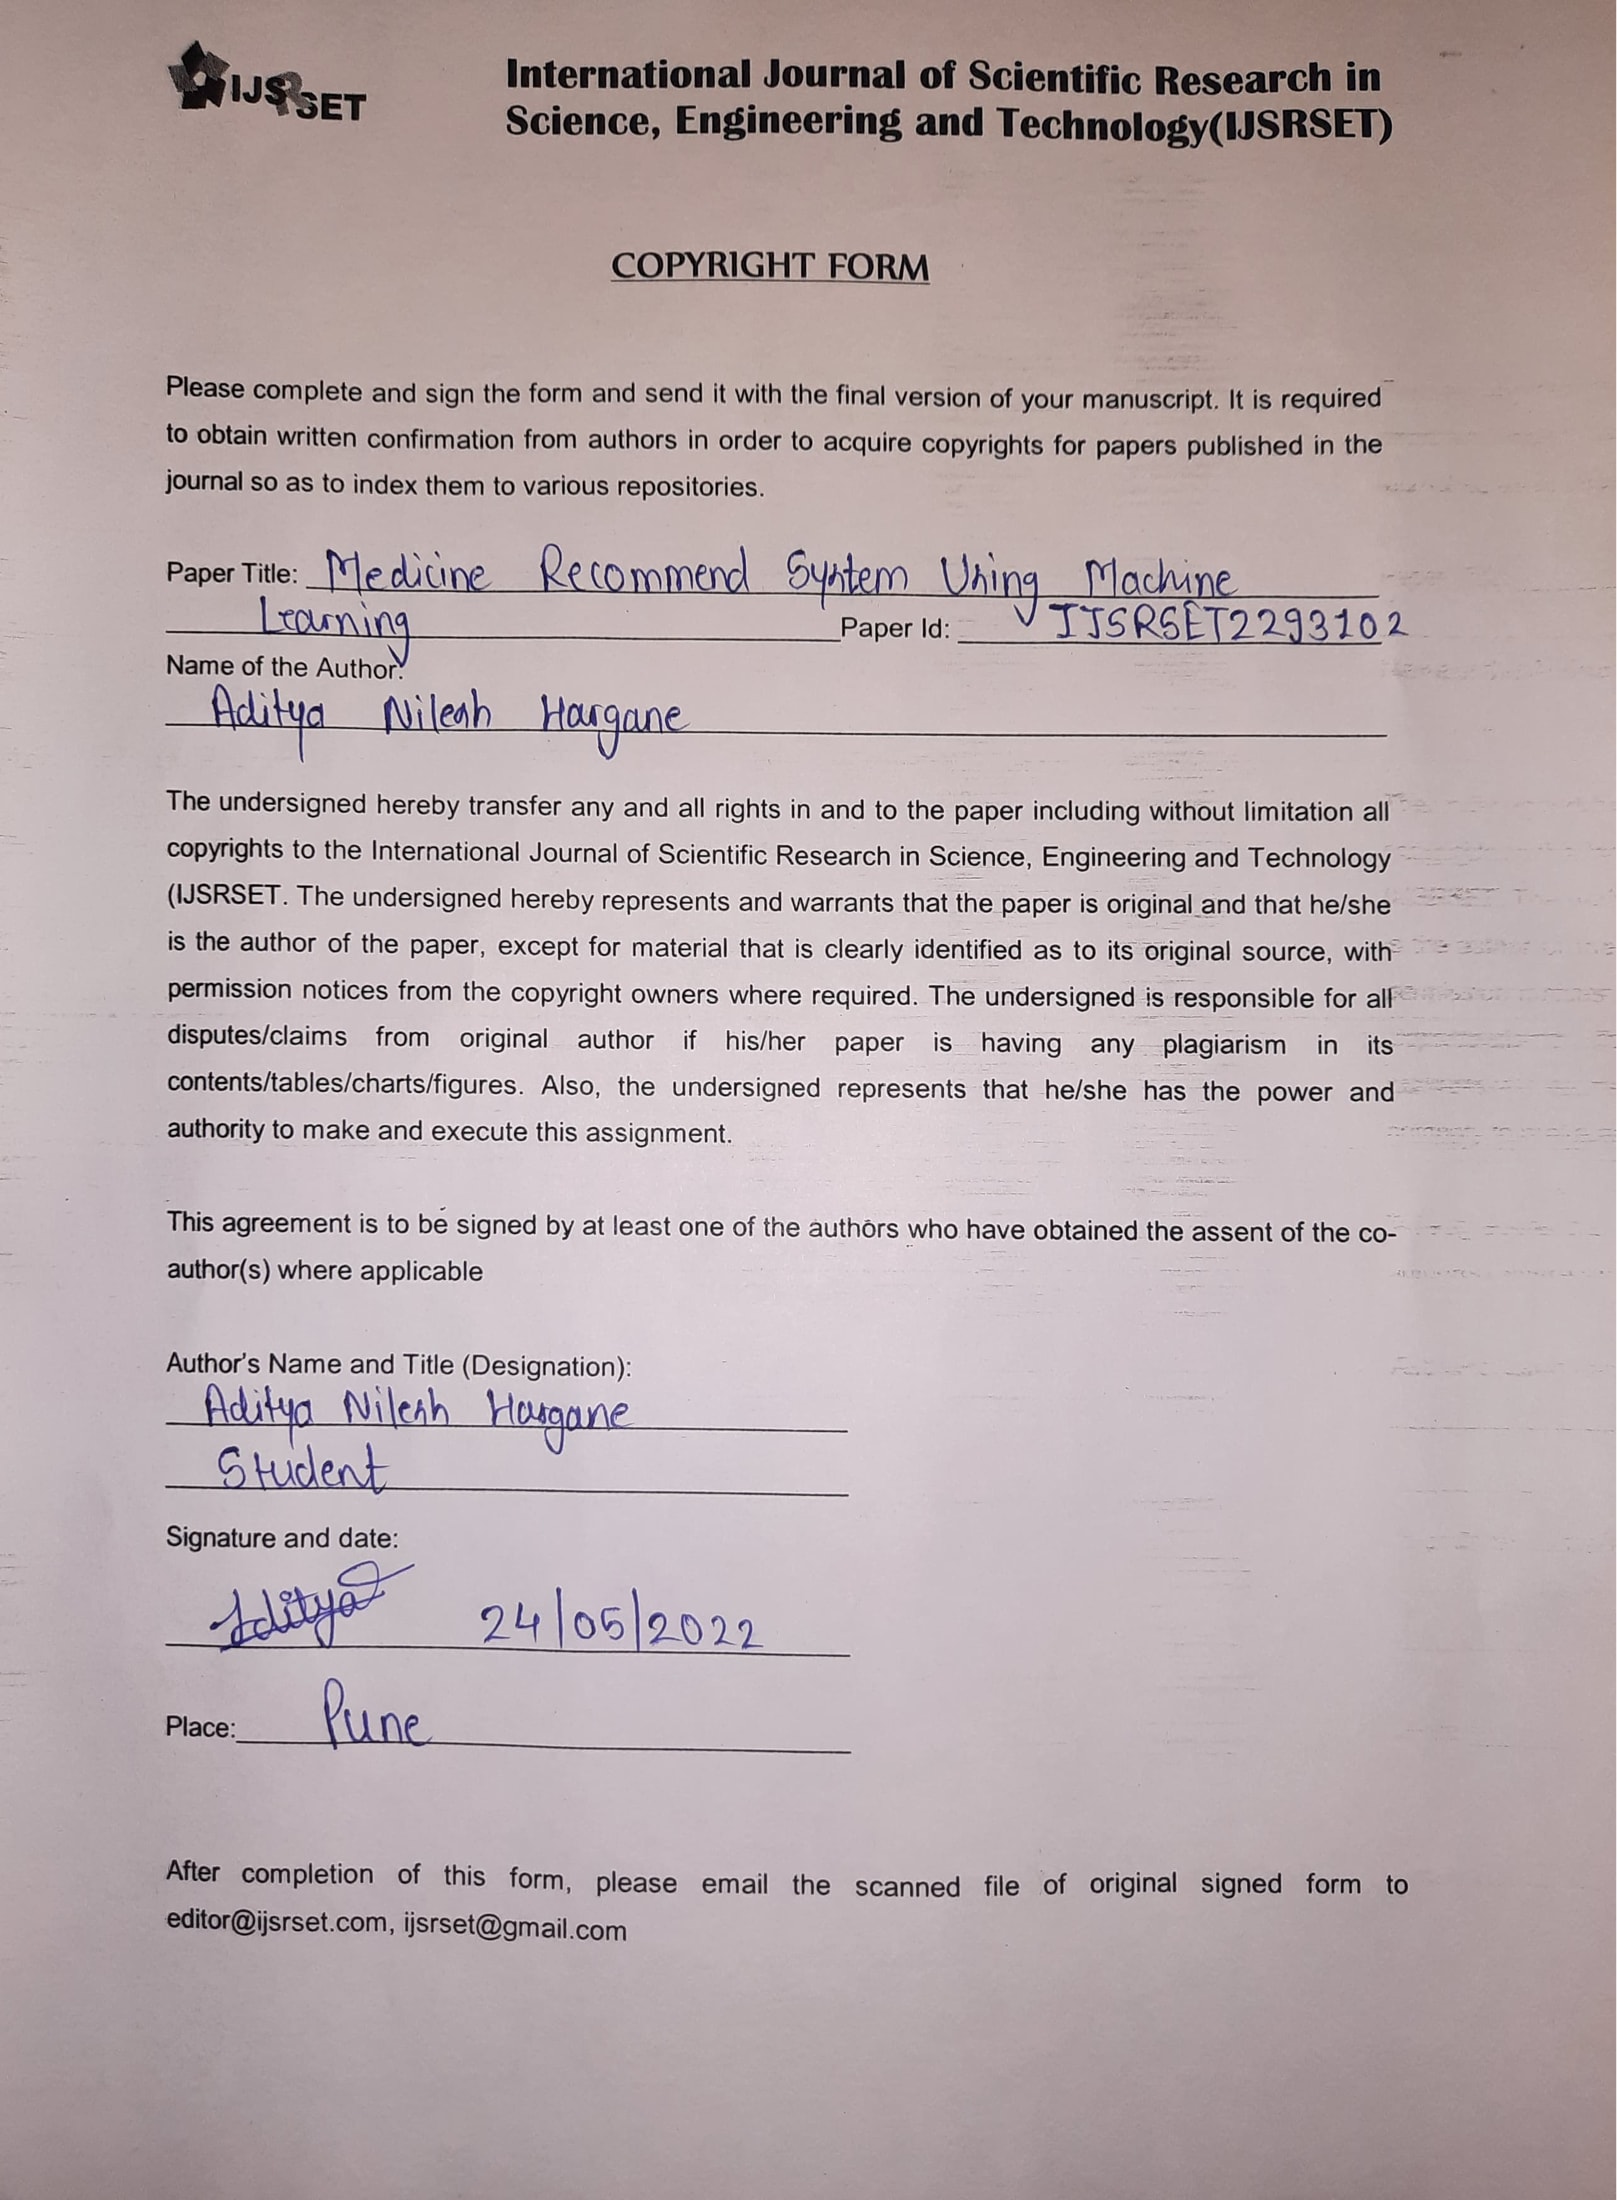 IJSRSET
International Journal of Scientific Research in
Science, Engineering and Technology(IJSRSET)
COPYRIGHT FORM
Please complete and sign the form and send it with the final version of your manuscript. It is required
to obtain written confirmation from authors in order to acquire copyrights for papers published in the
journal so as to index them to various repositories.
Paper Title: Medicine Recommend System Using Machine
Learning Paper Id: IJSRSET2293102
Name of the Author:
Aditya Nilesh Hargane
The undersigned hereby transfer any and all rights in and to the paper including without limitation all
copyrights to the International Journal of Scientific Research in Science, Engineering and Technology
(IJSRSET. The undersigned hereby represents and warrants that the paper is original and that he/she
is the author of the paper, except for material that is clearly identified as to its original source, with
permission notices from the copyright owners where required. The undersigned is responsible for all
disputes/claims from original author if his/her paper is having any plagiarism in its
contents/tables/charts/figures. Also, the undersigned represents that he/she has the power and
authority to make and execute this assignment.
This agreement is to be signed by at least one of the authors who have obtained the assent of the co-
author(s) where applicable
Author's Name and Title (Designation):
Aditya Nilesh Hargane
Student
Signature and date:
Aditya 24/05/2022
Place: Pune
After completion of this form, please email the scanned file of original signed form to
editor@ijsrset.com, ijsrset@gmail.com